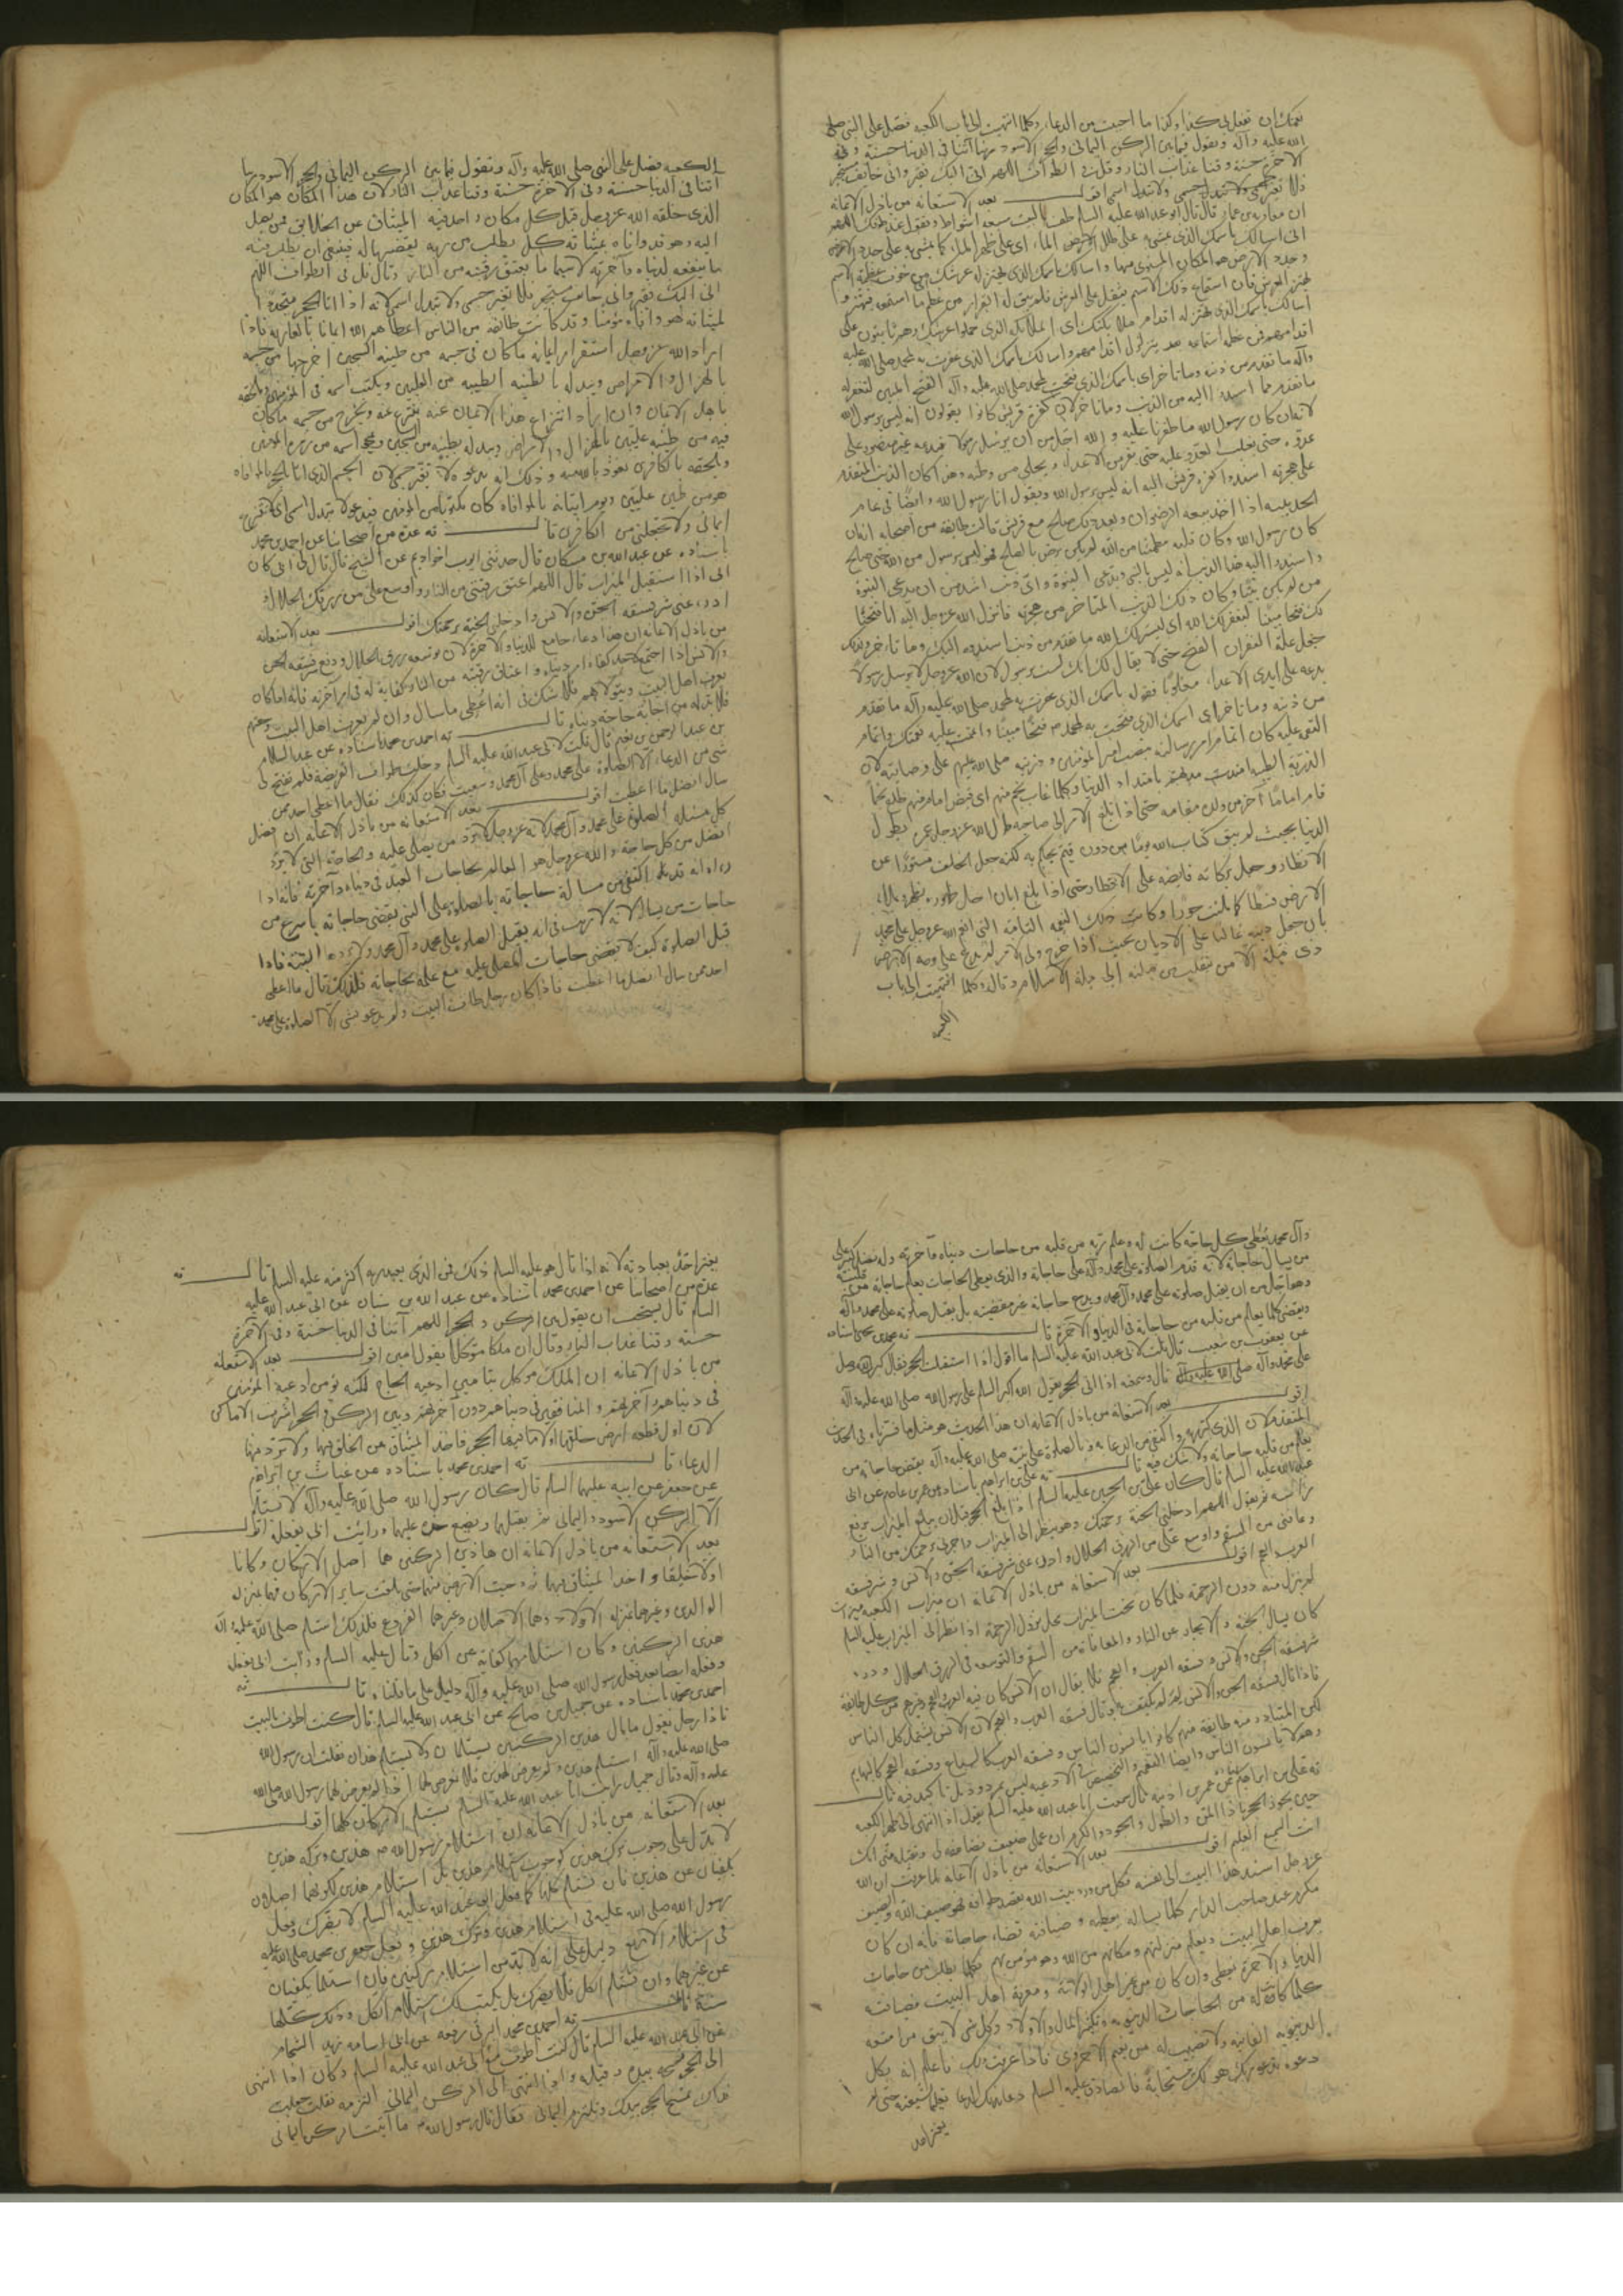 نعمتك ان تفعل بي كذا وكذا ما احببت من الدعاء وكلما انتهيت الى باب الكعبه فصل على النبي صلى
الله عليه وآله وتقول فيما بين الركن اليماني والحجر الاسود ربنا آتنا في الدنيا حسنة وفي
الآخرة حسنة وقنا عذاب النار وقل في الطواف اللهم اني اليك فقير واني خائف مستجير
فلا تغير جسمي ولا تبدل اسمي اقول بعد الاستعانه من باذل الاعانه
ان معاوية بن عمار قال قال ابو عبد الله عليه السلام طف بالبيت سبعه اشواط وتقول في طوافك اللهم
اني اسالك باسمك الذي يمشي به على طلل الماء اى على ظهر الماء كما يمشي به على جدد الارض
وجدد الارض هو المكان المستوى منها واسالك باسمك الذي يهتز له عرشك من خوف عظمة الاسم
اسالك باسمك الذي تهتز له اقدام ملائكتك اى الملائكه الذي حملوا عرشك وهم ثابتون على
وآله ما تقدم من ذنبه وما تاخر اى باسمك الذي فتحت لمحمد صلى الله عليه وآله الفتح المبين لتغفر له
ما تقدم مما اسندوا اليه من الذنب وما تاخر لان كفره قريش كانوا يقولون انه ليس برسول الله
لانه ان كان رسول الله ما ظفرنا عليه و الله اجل من ان يرسل رسولا
على هجرته اسندوا كفره قريش اليه انه ليس برسول الله ويقول انا رسول الله وايضا في عام
الحديبيه اذا اخذ بيعه الرضوان وبعد ذلك صالح مع قريش قالت طائفه من اصحابه ان
كان رسول الله وكان قلبه مطمئنا من الله لم يكن يرضى بالصلح فهو ليس برسول من الله حتى صالح
واسندوا اليه هذا الذنب انه ليس بالنبي ويدعى النبوة واى ذنب اشد من ان يدعى النبوة
من لم يكن نبيا وكان ذلك الذنب المتاخر من هجرته فانزل الله عز وجل اليه انا فتحنا
لك فتحا مبينا ليغفر لك الله اى ليستر لك الله ما تقدم من ذنب اسندوه اليك وما تاخر وكذلك
جعل علة الغفران الفتح حتى لا يقال لك انك لست برسول لان الله عز وجل لا يرسل رسولا
يدعه على ايدى الاعداء مغلوبا فقوله باسمك الذي غفرت به لمحمد صلى الله عليه وآله ما تقدم
من ذنبه وما تاخر اى اسمك الذي فتحت به لمحمد ص فتحا مبينا واتممت عليه نعمتك واتمام
قام اماما آخر من ولده مقامه حتى اذا بلغ الامر الى صاحبه طال الله عز وجل عمره بطول
الدنيا بحيث لم يبق كتاب الله يوما من دون قيم يحكم به لكنه جعل الخلف مستورا عن
الانظار وجعل بركاته فايضه على الاقطار حتى اذا بلغ ابان اجال ظهوره
الارض قسطا كما ملئت جورا وكانت ذلك النعمه التامه التى اتم الله عز وجل على محمد
بان جعل دينه غالبا على الاديان بحيث اذا خرج ولى الامر لم يدع على وجه الارض
ذى قبلة الا من ينقلب من قبلته الى قبلة الاسلام وقال وكلما انتهيت الى باب
الكعبه
الكعبه فصل على النبي صلى الله عليه وآله وتقول فيما بين الركن اليماني والحجر الاسود ربنا
آتنا في الدنيا حسنة وفي الآخرة حسنة وقنا عذاب النار لان هذا المكان هو المكان
الذي خلقه الله عز وجل قبل كل مكان واخذ فيه الميثاق عن الخلايق فمن يصل
اليه وهو قد وافاه بميثاقه كل يطلب من ربه يقضيها له فينبغى ان يطلب منه
ما ينفعه لدنياه وآخرته لا سيما ما يعتق رقبته من النار وقال قل في الطواف اللهم
انى اليك فقير وانى خائف مستجير فلا تغير جسمى ولا تبدل اسمى لانه اذا اتا الحجر متجددا
لميثاقه فهو وافاه مؤمنا وقد كانت طائفه من الناس اعطاهم الله ايمانا بالعاريه فاذا
اراد الله عز وجل استقرار ايمانه ما كان في جسمه من طينه السجين اخرجها من جسمه
بالهزال والامراض ويبدله بالطينه الطيبه من العليين ويكتب اسمه في المؤمنين ويلحقه
باجل الايمان وان اراد انتزاع هذا الايمان عنه ينتزع عنه ويخرج من جسمه ما كان
فيه من طينه عليين بالهزال والامراض ويبدله بطينه من السجين ويمحو اسمه من زمرة المؤمنين
ويلحقه بالكافرين نعوذ بالله منه وذلك انه يدعوه لا تغير جسمى لان الجسم الذي اتا الحجر بالموافاه
هو من طين عليين ويوم اتيانه بالموافاه كان مكتوبا من المؤمنين فيدعو لا تبدل اسمى اى لا تنتزع
ايمانى ولا تجعلنى من الكافرين قال ثه عدة من اصحابنا عن احمد بن محمد
باسناده عن عبد الله بن مسكان قال حدثنى ايوب اخو اديم عن الشيخ قال قال لي ابي كان
ابى اذا استقبل الميزاب قال اللهم اعتق رقبتى من النار واوسع على من رزقك الحلال و
ادرء عنى شر فسقه الجن والانس وادخلنى الجنة برحمتك اقول بعد الاستعانه
من باذل الاعانه ان هذا دعاء جامع للدنيا والآخرة لان توسعه رزق الحلال ودفع فسقه الجن
والانس اذا اجتمع لاحد كفاه امر دنياه واعتاق رقبته من النار كفاية له فى امر آخرته فانه لما كان
يعرف اهل البيت ويتولاهم فلا شك فى انه اعطى ما سال وان لم يعرف اهل البيت
فلا بد له من اجابه حاجه دنياه قال ثه احمد بن محمد باسناده عن عبد السلام
بن عبد الرحمن بن نعيم قال قلت لابى عبد الله عليه السلام دخلت طواف الفريضه فلم يفتح لى
شى من الدعاء الا الصلوة على محمد وعلى آل محمد وسعيت فكان كذلك فقال ما اعطى احد ممن
سال افضل مما اعطيت اقول بعد الاستعانه من باذل الاعانه ان افضل
كل مسئله الصلوة على محمد وآل محمد لانه عز وجل لا يرد من يصلى عليه والحاجة التى لا يرد
افضل من كل حاجه والله عز وجل هو العالم بحاجات العبد فى دنياه وآخرته فانه اذا
راه انه قد اكتفى من مسالة حاجاته بالصلوة على النبى يقضى حاجاته باسرع من
حاجات من يساله لانه لا ريب فى انه يقبل الصلوة على محمد وآل محمد ولا يرده البتة فاذا
قبل الصلوة كيف لا يقضى حاجات المصلى عليه مع علمه بحاجاته فلذلك قال ما اعطى
احد ممن سال افضل مما اعطيت فاذا كان رجل طاف البيت ولم يدعو بشى الا الصلوة على محمد
وآل محمد يعطى كل حاجة كانت له وعلم ربه من قلبه من حاجات دنياه وآخرته وله فضل كثير على
من يسال حاجاته لانه قدم الصلوة على محمد وآله على حاجاته والذي يعطى الحاجات يعلم حاجاته من قلبه
وهو اجل من ان يقبل صلوته على محمد وآل محمد ويدع حاجاته غير مقضيه بل يقبل صلوته على محمد وآله
ويقضى كلما يعلم من قلبه من حاجاته فى الدنيا والآخرة قال ثه محمد بن يحيى باسناده
عن يعقوب بن شعيب قال قلت لابى عبد الله عليه السلام ما اقول اذا استقبلت الحجر فقال كبر الله وصل
على محمد وآله قال وسمعته اذا اتى الحجر يقول الله اكبر السلام على رسول الله صلى الله عليه وآله
اقول بعد الاستعانه من باذل الاعانه ان هذا الحديث هو مثل ما فسرناه فى الحديث
يعلم من قلبه حاجاته ولا شك فيه قال ثه على بن ابراهيم باسناده عن عمر بن عاصم عن ابى
عبد الله عليه السلام قال كان على بن الحسين عليه السلام اذا بلغ الحجر قبل ان يبلغ الميزاب يرفع
راسه ثم يقول اللهم ادخلنى الجنة برحمتك وهو ينظر الى الميزاب واجرنى برحمتك من النار
وعافنى من السقم واوسع على من الرزق الحلال وادرء عنى شر فسقة الجن والانس وشر فسقة
العرب والعجم اقول بعد الاستعانه من باذل الاعانه ان ميزاب الكعبه ميزاب
لم ينزل منه دون الرحمة فلما كان تحت الميزاب محل نزول الرحمة اذا نظر الى الميزاب عليه السلام
كان يسال الجنة والايجار عن النار والمعافاة من السقم والتوسعه فى الرزق الحلال ودرء
شر فسقة الجن والانس وفسقه العرب والعجم فلا يقال ان الانس كان فيه العرب والعجم
لكن المتبادر منه طائفة منهم كانوا يانسون الناس وفسقه العرب كالسباع وفسقه العجم كالبهايم
وهؤلا يانسون الناس وايضا التعميم والتخصيص فى الادعيه ليس بمردود بل تاكيد فيه قال
ثه على بن ابراهيم عن عمر بن اذينه قال سمعت ابا عبد الله عليه السلام يقول اذا انتهى الى ظهر الكعبه
حين يجوز الحجر يا ذا المن والطول والجود والكرم ان عملى ضعيف فضاعفه لى وتقبله منى انك
انت السميع العليم اقول بعد الاستعانه من باذل الاعانه لما عرفت ان الله
عز وجل اسند هذا البيت الى نفسه فكل من ورد بيت الله بقصد طوافه فهو ضيف الله والضيف
مكرم عند صاحب الدار كلما يساله يعطه و ضيافته قضاء حاجاته فانه ان كان
يعرف اهل البيت ويعلم منزلتهم ومكانهم من الله وهو مؤمن بهم فكلما يطلب من حاجات
الدنيا والآخرة يعطى وان كان من غير اهل الولاية ومعرفة اهل البيت فضيافته
كلما كان له من الحاجات الدنيويه وتكثير المال والاولاد وكل شى لا يبقى من امتعه
الدنيويه الفانيه ولا نصيب له من نعيم الاخروى فاذا عرفت ذلك فاعلم انه بكل
دعوه يدعو ربك هو لك مستجابة فالصادق عليه السلام دعا بهذه الدعا تعليما لشيعته حتى لم
يغتر احد
يغتر احد بعبادته لانه اذا قال هو عليه السلام ذلك فمن الذي يعبد ربه اكثر منه عليه السلام قال ثه
عدة من اصحابنا عن احمد بن محمد باسناده عن عبد الله بن سنان عن ابى عبد الله عليه
السلام قال يستحب ان يقول بين الركن والحجر اللهم آتنا فى الدنيا حسنة وفى الآخرة
حسنة وقنا عذاب النار وقال ان ملكا موكلا يقول آمين اقول بعد الاستعانه
من باذل الاعانه ان الملك موكل بتامين ادعيه الحاج لكنه يؤمن ادعية المؤمنين
فى دنياهم وآخرتهم والمنافقين فى دنياهم دون آخرتهم وبين الركن والحجر اشرف الاماكن
لان اول قطعه ارض خلقها اولا ما فيها الحجر فاخذ الميثاق عن الخلق فيها ولا ترد منها
الدعاء قال ثه احمد بن محمد باسناده عن غياث بن ابراهيم
عن جعفر عن ابيه عليهما السلام قال كان رسول الله صلى الله عليه وآله لا يستلم
الا الركن الاسود واليمانى ثم يقبلهما ويضع خده عليهما ورايت ابى يفعله اقول
بعد الاستعانه من باذل الاعانه ان هاذين الركنين هما اصل الاركان وكانا
اولا تخليقا واخذ الميثاق بهما ثم دحيت الارض منهما حتى بلغت ساير الاركان فهما بمنزله
الوالدين وغيرهما بمنزله الاولاد وهما الاصلان وغيرهما الفروع فلذلك استلم صلى الله عليه وآله
هذين الركنين وكان استلامهما كفاية عن الكل وقال عليه السلام ورايت ابى يفعل
وفعله ايضا بعد فعل رسول الله صلى الله عليه وآله دليل على ما قلناه قال ثه
احمد بن محمد باسناده عن جميل بن صالح عن ابى عبد الله عليه السلام قال كنت اطوف بالبيت
فاذا رجل يقول ما بال هذين الركنين يستلمان ولا يستلم هذان فقلت ان رسول الله
صلى الله عليه وآله استلم هذين ولم يعرض لهذين فلا تعرض لهما اذا لم يعرض لهما رسول الله صلى الله
عليه وآله وقال جميل رايت ابا عبد الله عليه السلام يستلم الاركان كلها اقول
بعد الاستعانه من باذل الاعانه ان استلام رسول الله ص هذين وتركه هذين
لا يدل على وجوب ترك هذين كوجوب استلام هذين بل استلام هذين لكونهما اصلان
يكفيان عن هذين فان تستلم كلها كما فعل ابى عبد الله عليه السلام لا يضرك وفعل
رسول الله صلى الله عليه فى استلام هذين وترك هذين و فعل جعفر بن محمد صلى الله عليه
فى استلام الاربع دليل على انه لا بد من استلام ركنين فان استلما يكفيان
عن غيرهما وان تستلم الكل فلا يضرك بل يكتب لك استلام الكل وذلك كلها
سنة قال ثه احمد بن محمد البرقى رفعه عن ابى اسامه زيد الشحام
عن ابى عبد الله عليه السلام قال كنت اطوف مع ابى عبد الله عليه السلام وكان اذا انتهى
الى الحجر مسحه بيده وقبله واذا انتهى الى الركن اليمانى التزمه فقلت جعلت
فداك تمسح الحجر بيدك وتلتزم اليمانى فقال قال رسول الله ص ما اتيت الركن اليمانى